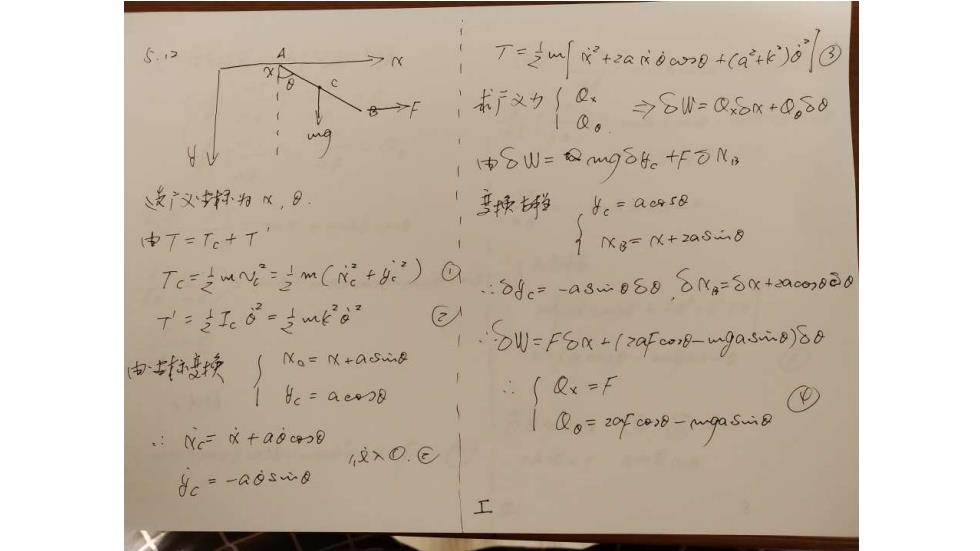 5.12
A
x
x
θ
C
B
F
mg
y
选广义坐标为 x, θ.
由 T = T_c + T'
T_c = ½ m v_c² = ½ m (ẋ_c² + ẏ_c²) ①
T' = ½ I_c θ̇² = ½ m k² θ̇² ②
由坐标变换 { x_c = x + a sinθ
y_c = a cosθ
∴ ẋ_c = ẋ + a θ̇ cosθ
ẏ_c = -a θ̇ sinθ
代入 ①. ②
T = ½ m [ẋ² + 2a ẋ θ̇ cosθ + (a² + k²) θ̇²] ③
求广义力 { Q_x
Q_θ.
⇒ δW = Q_x δx + Q_θ δθ
由 δW = mg δy_c + F δx_B
变换方程
{ y_c = a cosθ
x_B = x + 2a sinθ
∴ δy_c = -a sinθ δθ, δx_B = δx + 2a cosθ δθ
∴ δW = F δx + (2aF cosθ - mga sinθ) δθ
∴ { Q_x = F
Q_θ = 2aF cosθ - mga sinθ
④
工